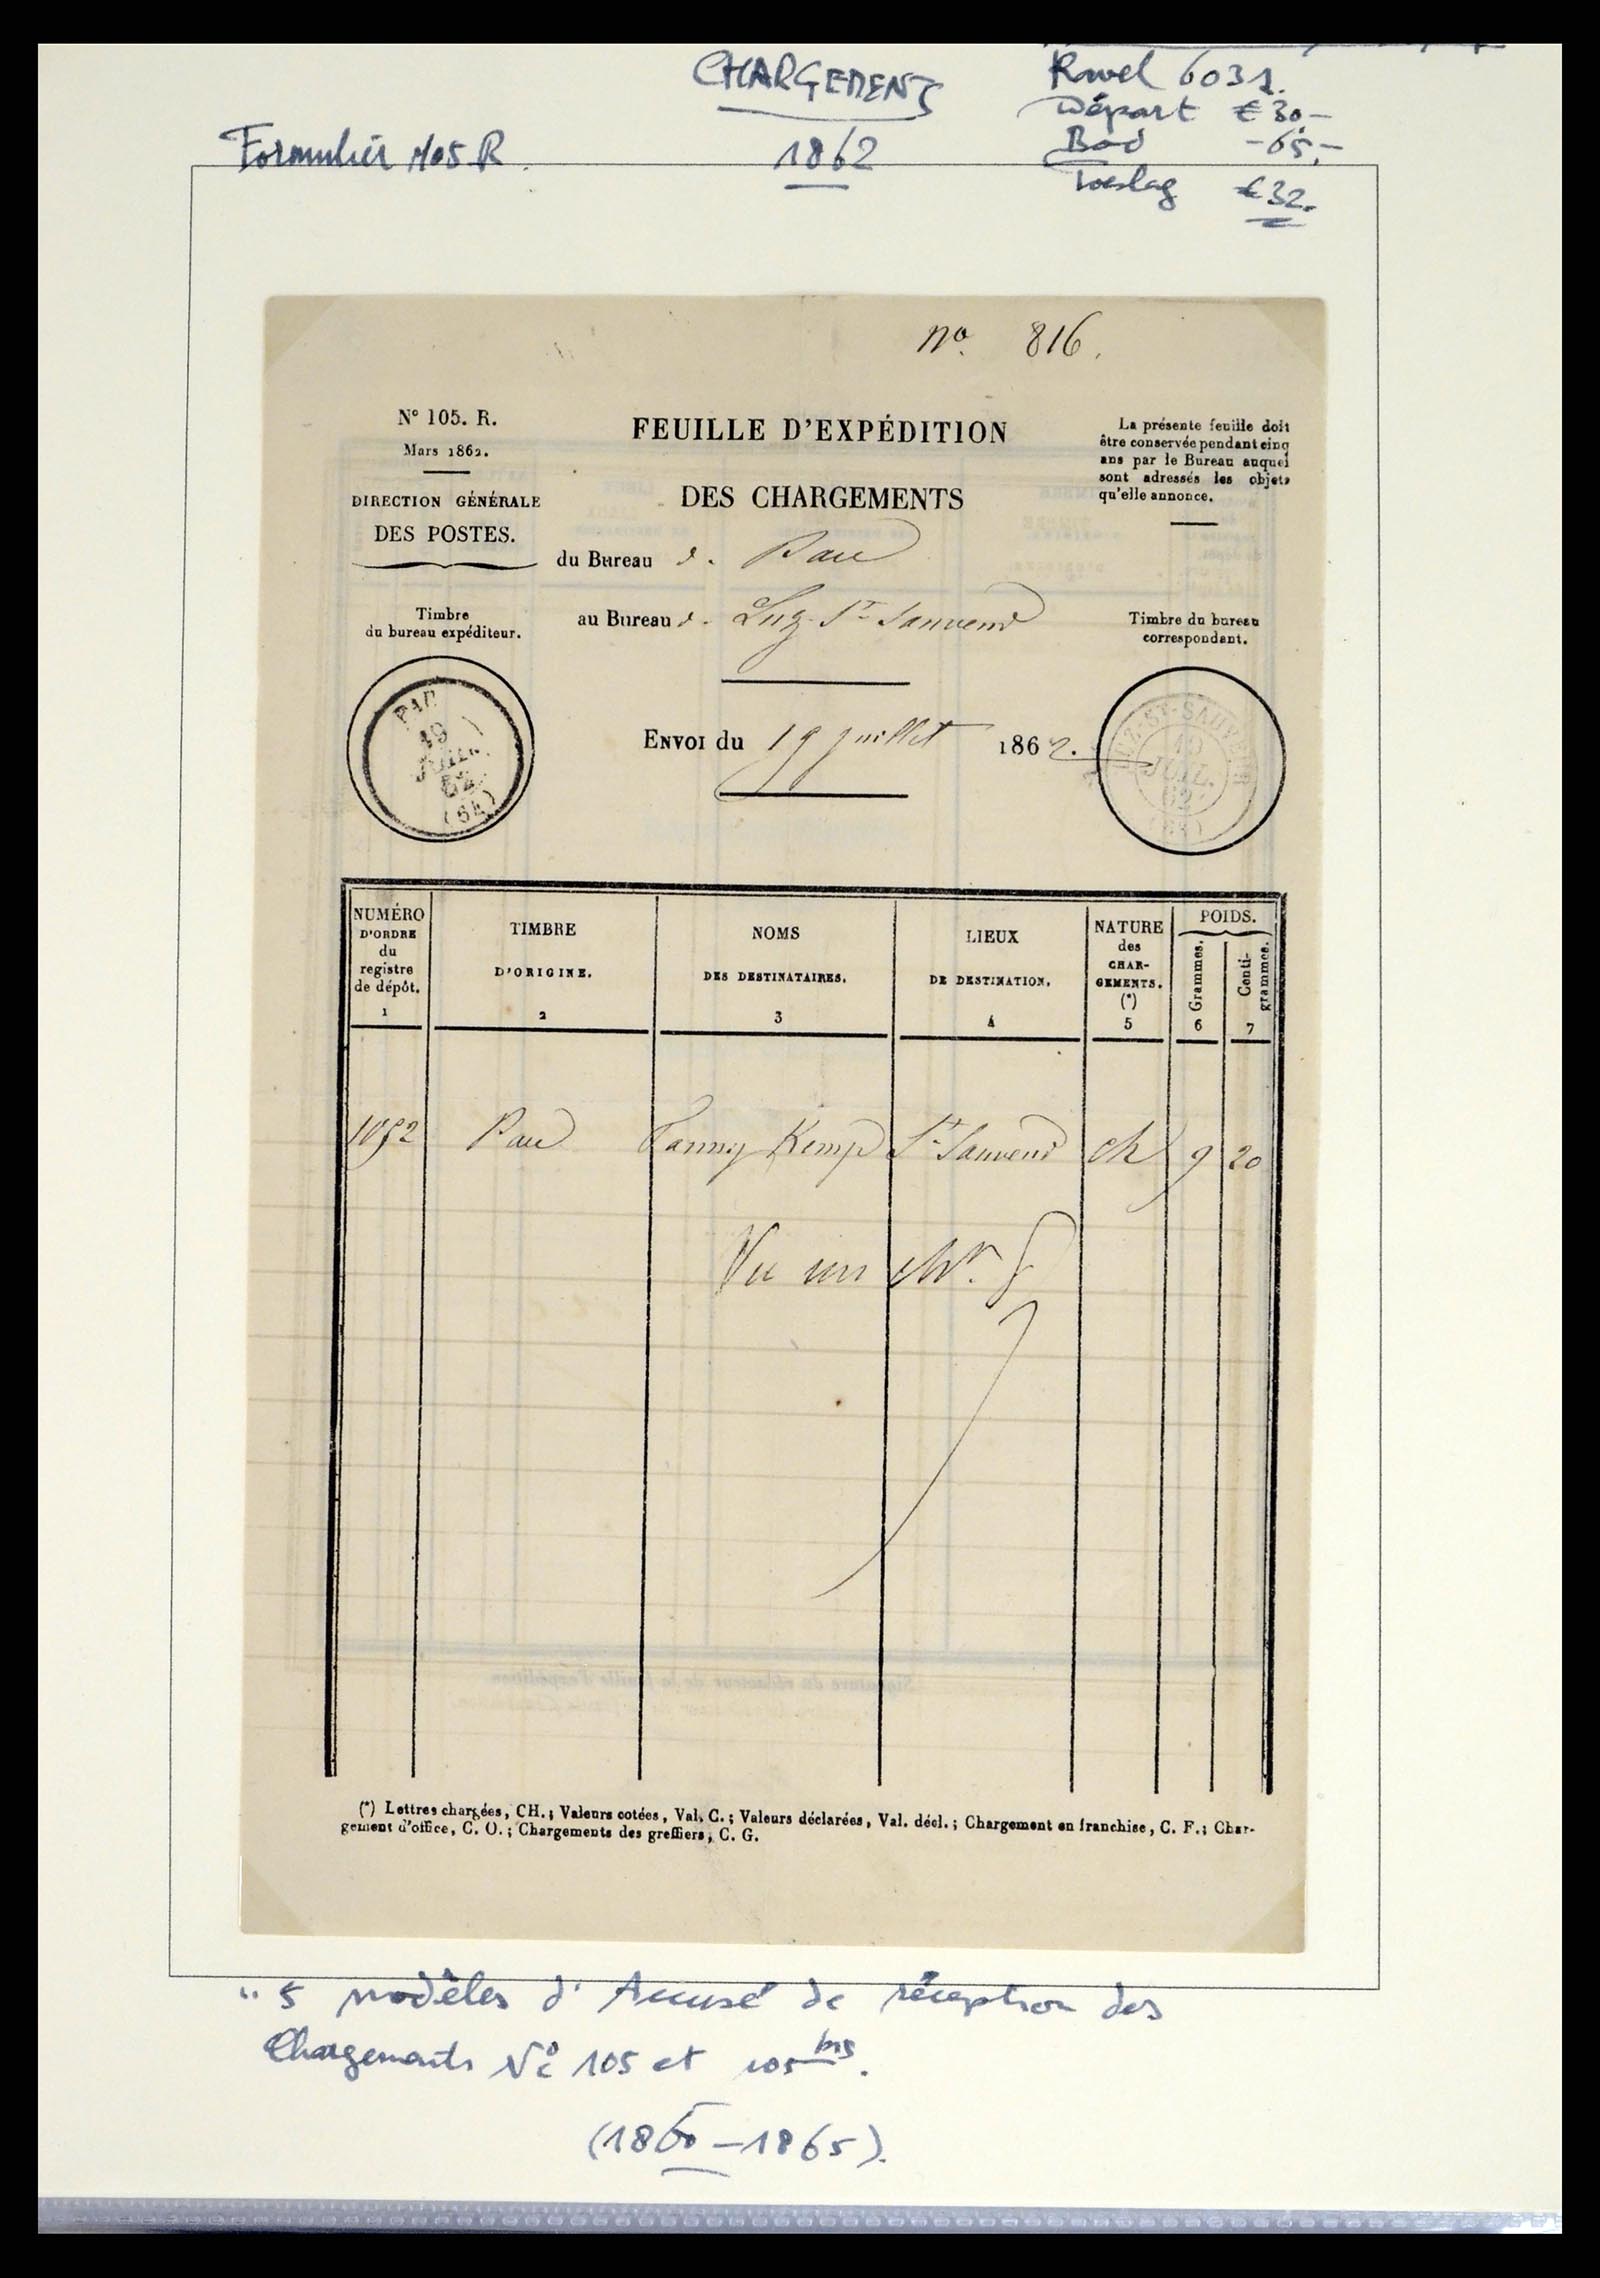 CHARGEMENT
1862
Formulier 105 R.
Ravel 6031.
Départ € 30,-
Bod -65,-
Toeslag € 32.
No. 816.
N° 105. R.
Mars 1862.
DIRECTION GÉNÉRALE
DES POSTES.
FEUILLE D'EXPÉDITION
DES CHARGEMENTS
du Bureau d. Pau
au Bureau d. Luz-St-Sauveur
La présente feuille doit
être conservée pendant cinq
ans par le Bureau auquel
sont adressés les objets
qu'elle annonce.
Timbre
du bureau expéditeur.
PAU
19
JUIL.
62
(64)
Envoi du 19 juillet 1862.
Timbre du bureau
correspondant.
LUZ-ST-SAUVEUR
JUIL.
62
NUMÉRO
D'ORDRE
du
registre
de dépôt.
1
TIMBRE
D'ORIGINE.
2
NOMS
DES DESTINATAIRES.
3
LIEUX
DE DESTINATION.
4
NATURE
des
CHAR-
GEMENTS.
(*)
5
POIDS.
Grammes.
6
Centi-
grammes.
7
1092 Pau Fanny Kemp St Sauveur ch 9 20
Vu un
(*) Lettres chargées, CH.; Valeurs cotées, Val. C.; Valeurs déclarées, Val. décl.; Chargement en franchise, C. F.; Char-
gement d'office, C. O.; Chargements des greffiers, C. G.
" 5 modèles d'Accusé de réception des
Chargements No 105 et 105 bis.
(1860-1865).